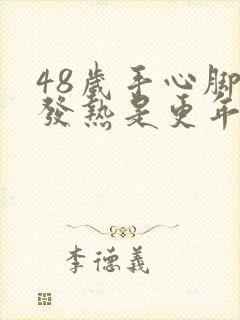 48歲手心腳
發熱是更年
李德義